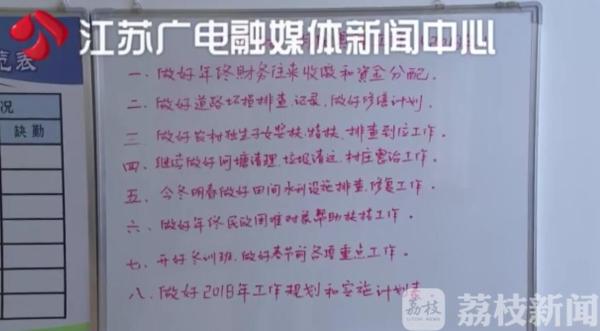 江苏广电融媒体新闻中心
览表
况
缺勤
一、做好年终财务往来收缴和资金分配。
二、做好道路坏损排查、记录、做好修缮计划
三、做好农村独生子女奖扶、特扶、排查到位工作。
四、继续做好河塘清理、垃圾清运、村庄整治工作。
五、今冬明春做好田间水利设施排查、修复工作。
六、做好年终民政困难对象帮助扶持工作。
七、开好冬训班、做好春节前各项重点工作。
八、做好2018年工作规划和实施计划表
荔枝
LITCHI NEWS
荔枝新闻